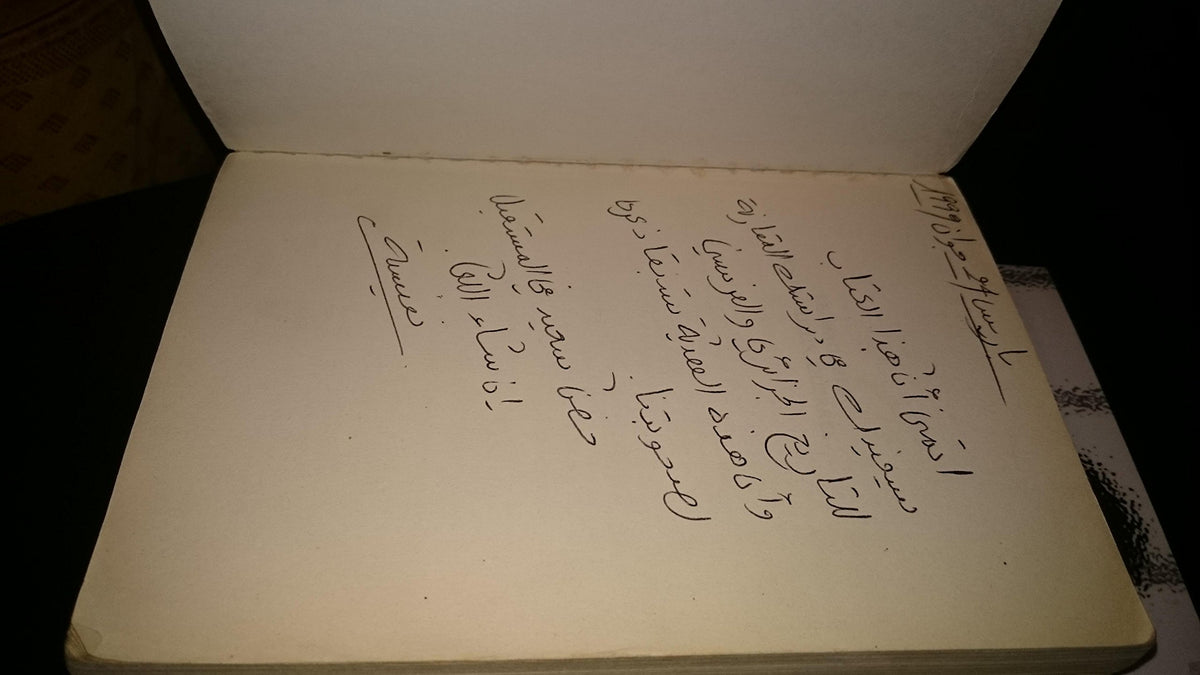 باريس في جوان 1999
اتمنى أن هذا الكتاب
سيفيدك في دراستك المقارنة
للتاريخ الجزائري والفرنسي
وأن هذه الهدية ستبقى ذكرى
لصحوبتنا.
حظا سعيد في المستقبل
إن شاء الله
نفيسة